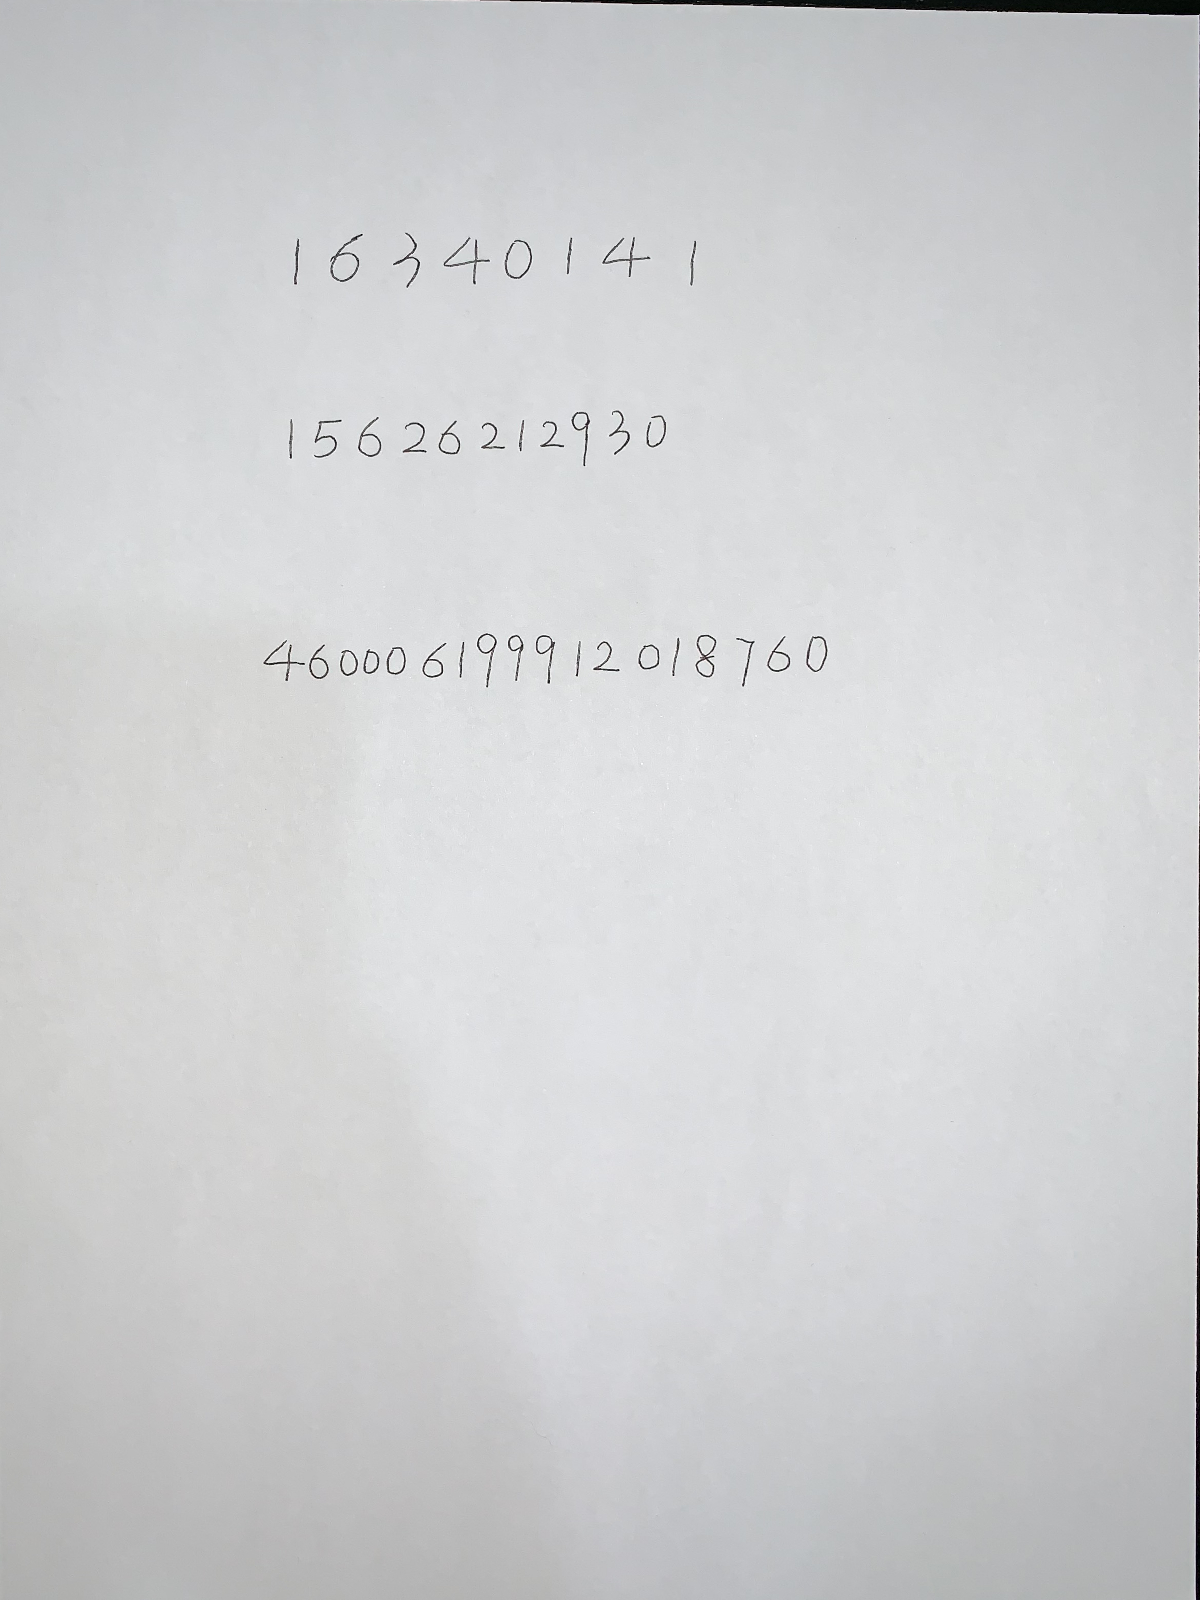 16340141
15626212930
460006199912018760